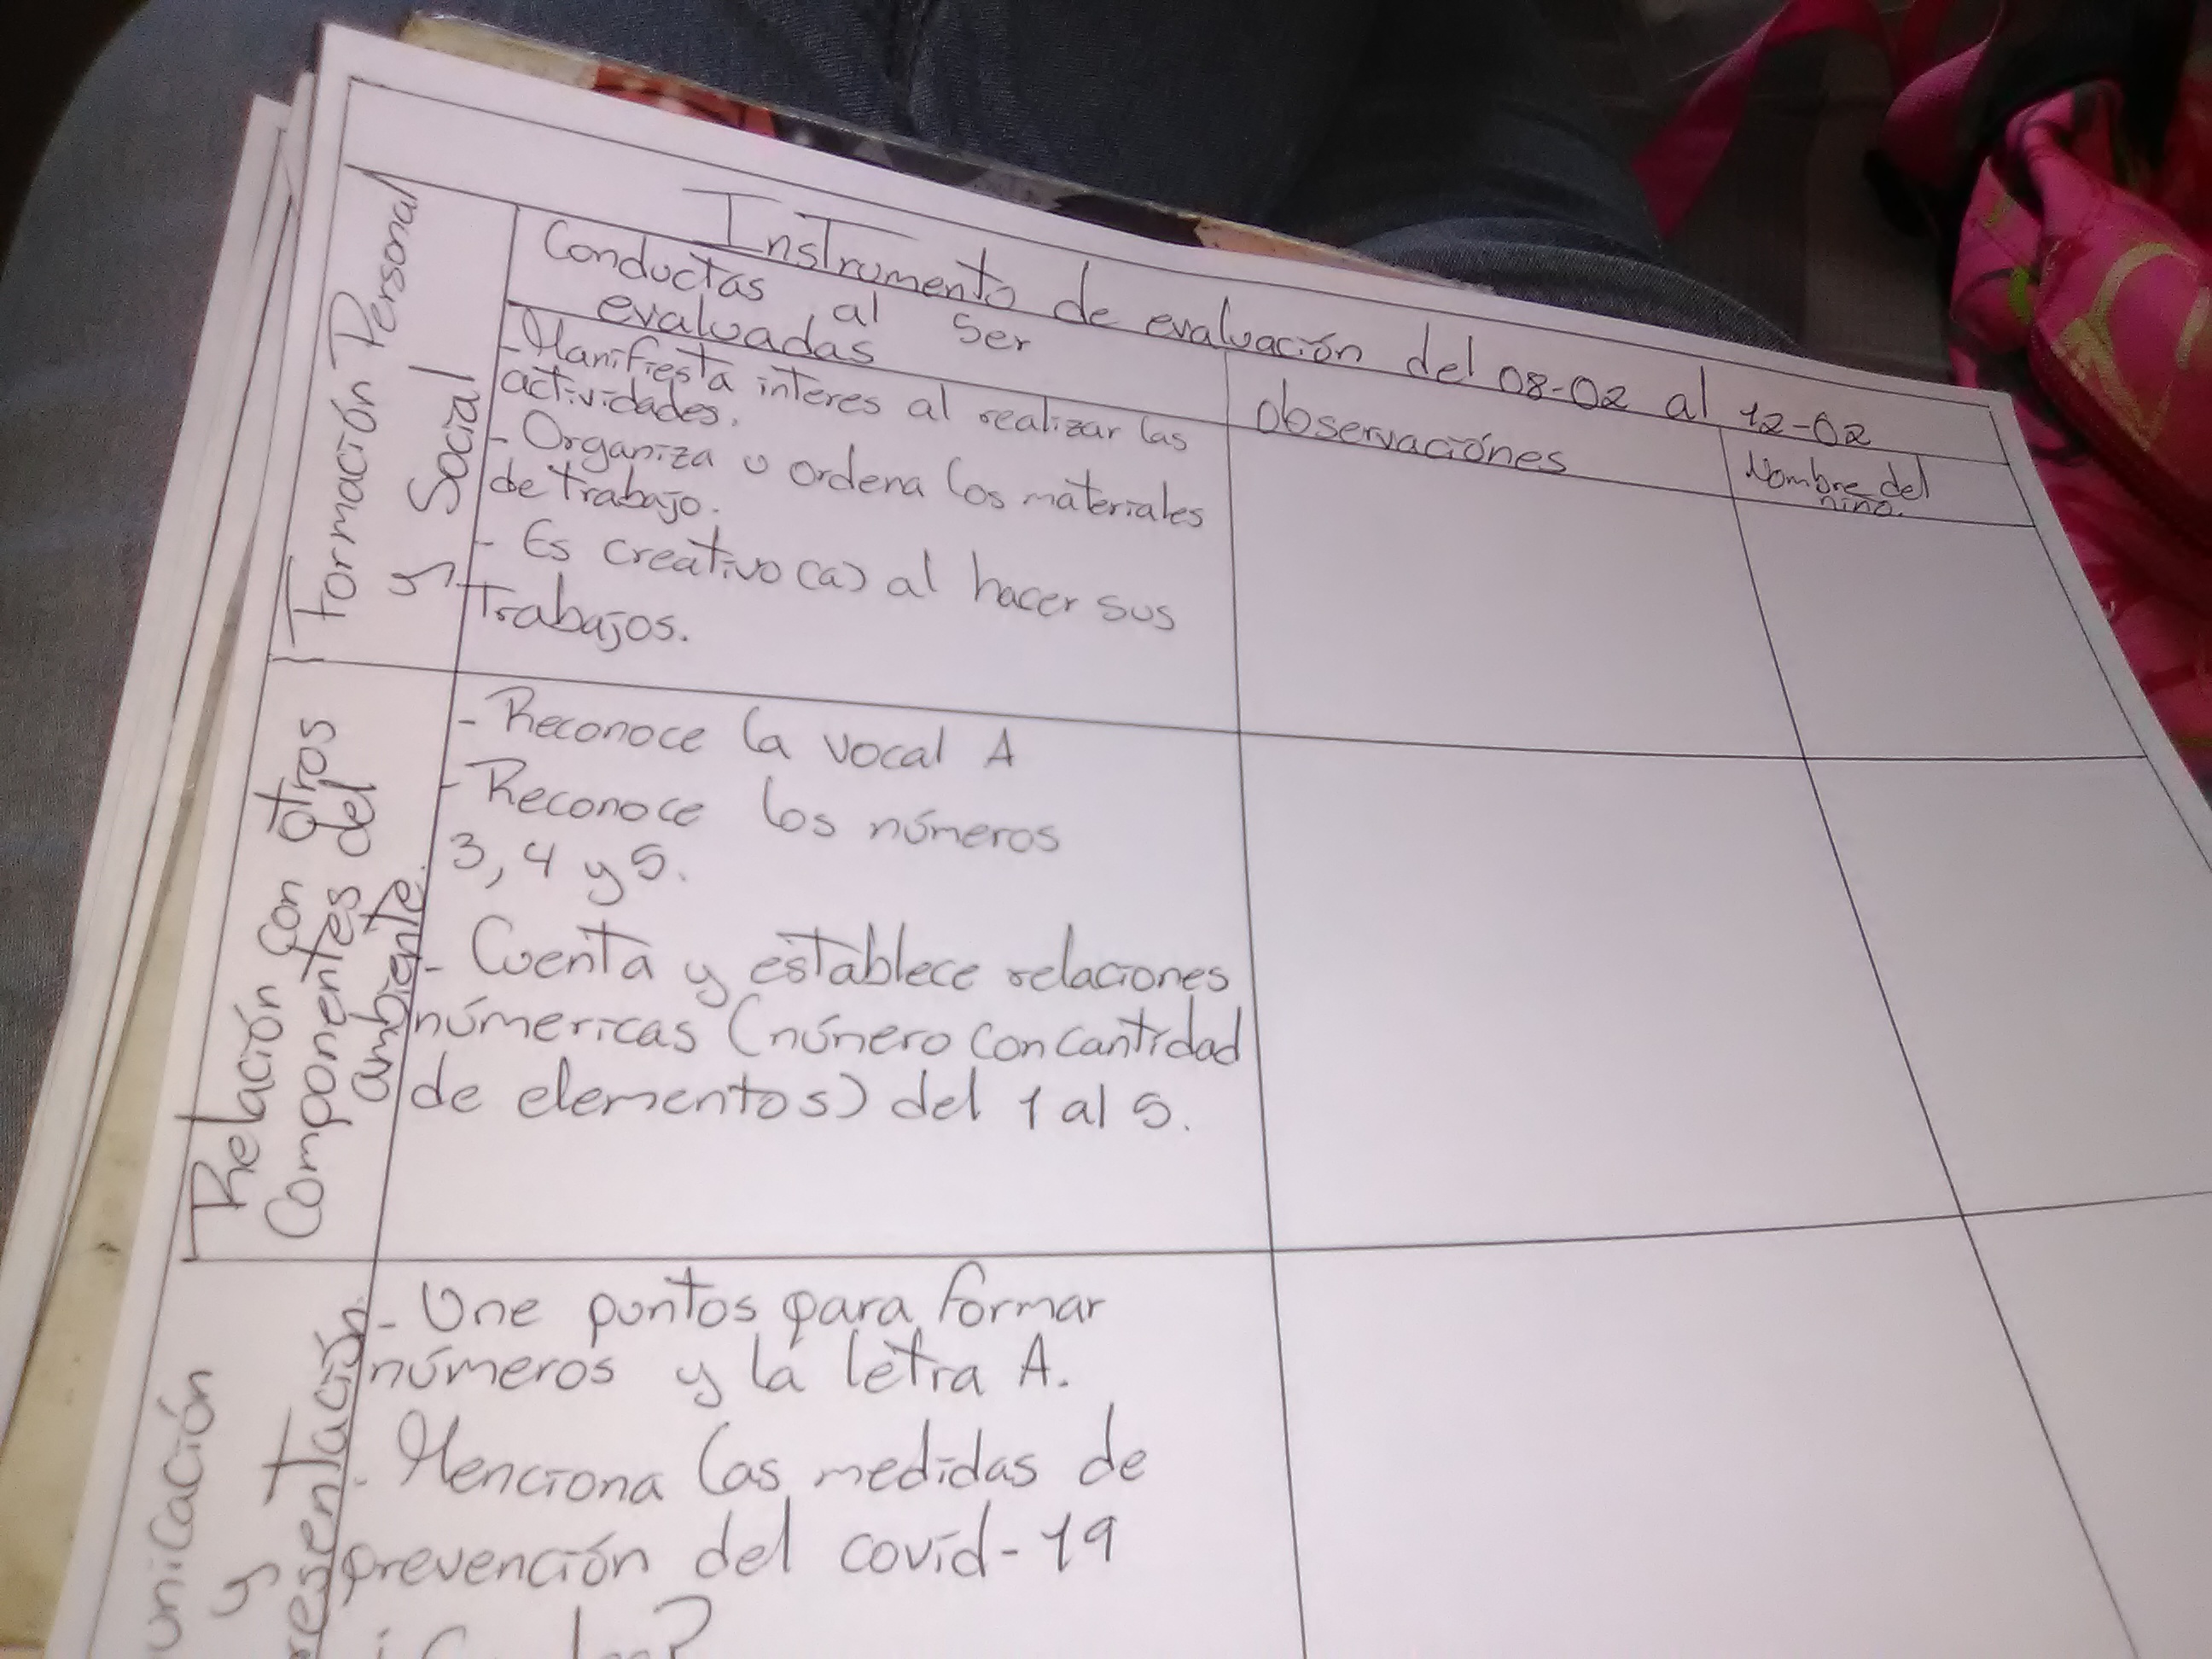 Instrumento de evaluación del 08-02 al 12-02
Conductas al ser
evaluadas
observaciónes
Nombre del
niño.
Formación Personal
y Social
-Manifiesta interes al realizar las
actividades.
- Organiza u ordena los materiales
de trabajo.
- Es creativo (a) al hacer sus
trabajos.
Relación con otros
Componentes del
ambiente.
- Reconoce la vocal A
- Reconoce los números
3, 4 y 5.
- Cuenta y establece relaciones
númericas (núnero con cantidad
de elementos) del 1 al 5.
unicación
y
resentación.
- Une puntos para formar
números y la letra A.
- Menciona las medidas de
prevención del covid-19